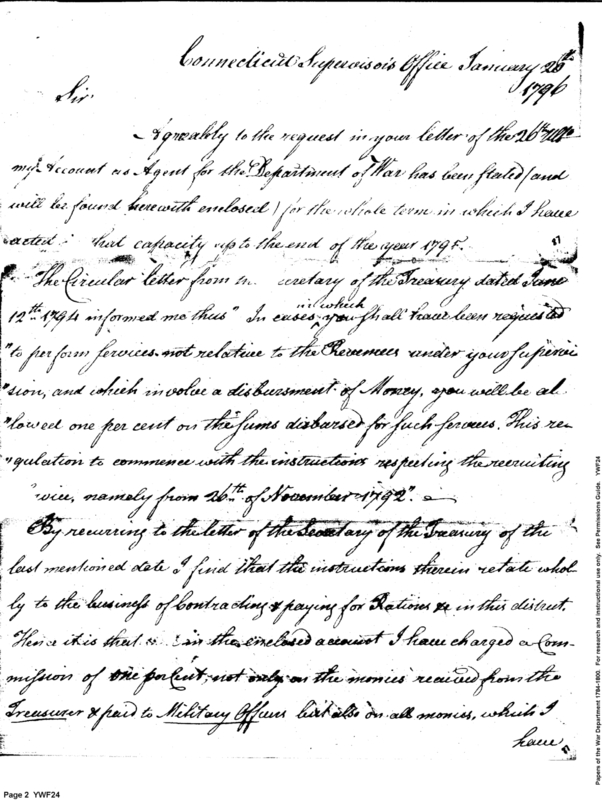 Connecticut Supervisors Office January 26th
1796
Sir
Agreably to the request in your letter of the 26th Ulto
my Account as Agent for the Department of War has been stated (and
will be found herewith enclosed) for the whole term in which I have
acted that capacity up to the end of the year 1795.
The Circular letter from cretary of the Treasury dated June
12th 1794 informed me thus " In cases in which you shall have been requested
"to perform services not relative to the Revenues under your supervi
"sion, and which involve a disbursment of Money, you will be al
"lowed one per cent on the sums disbursed for such services. This re
"gulation to commence with the instructions respecting the recruiting
vice, namely from 26th of November 1792".
By recurring to the letter of the Secretary of the Treasury of the
last mentioned date I find that the instructions therein relate whol
ly to the business of Contracting & paying for Rations &c in this district.
Hence it is that in the enclosed account I have charged a Com-
mission of one per Cent, not only on the monies received from the
Treasurer & paid to Military Officers but also on all monies, which I
have
Page 2 YWF24
Papers of the War Department 1784-1800. For research and instructional use only. See Permissions Guide. YWF24